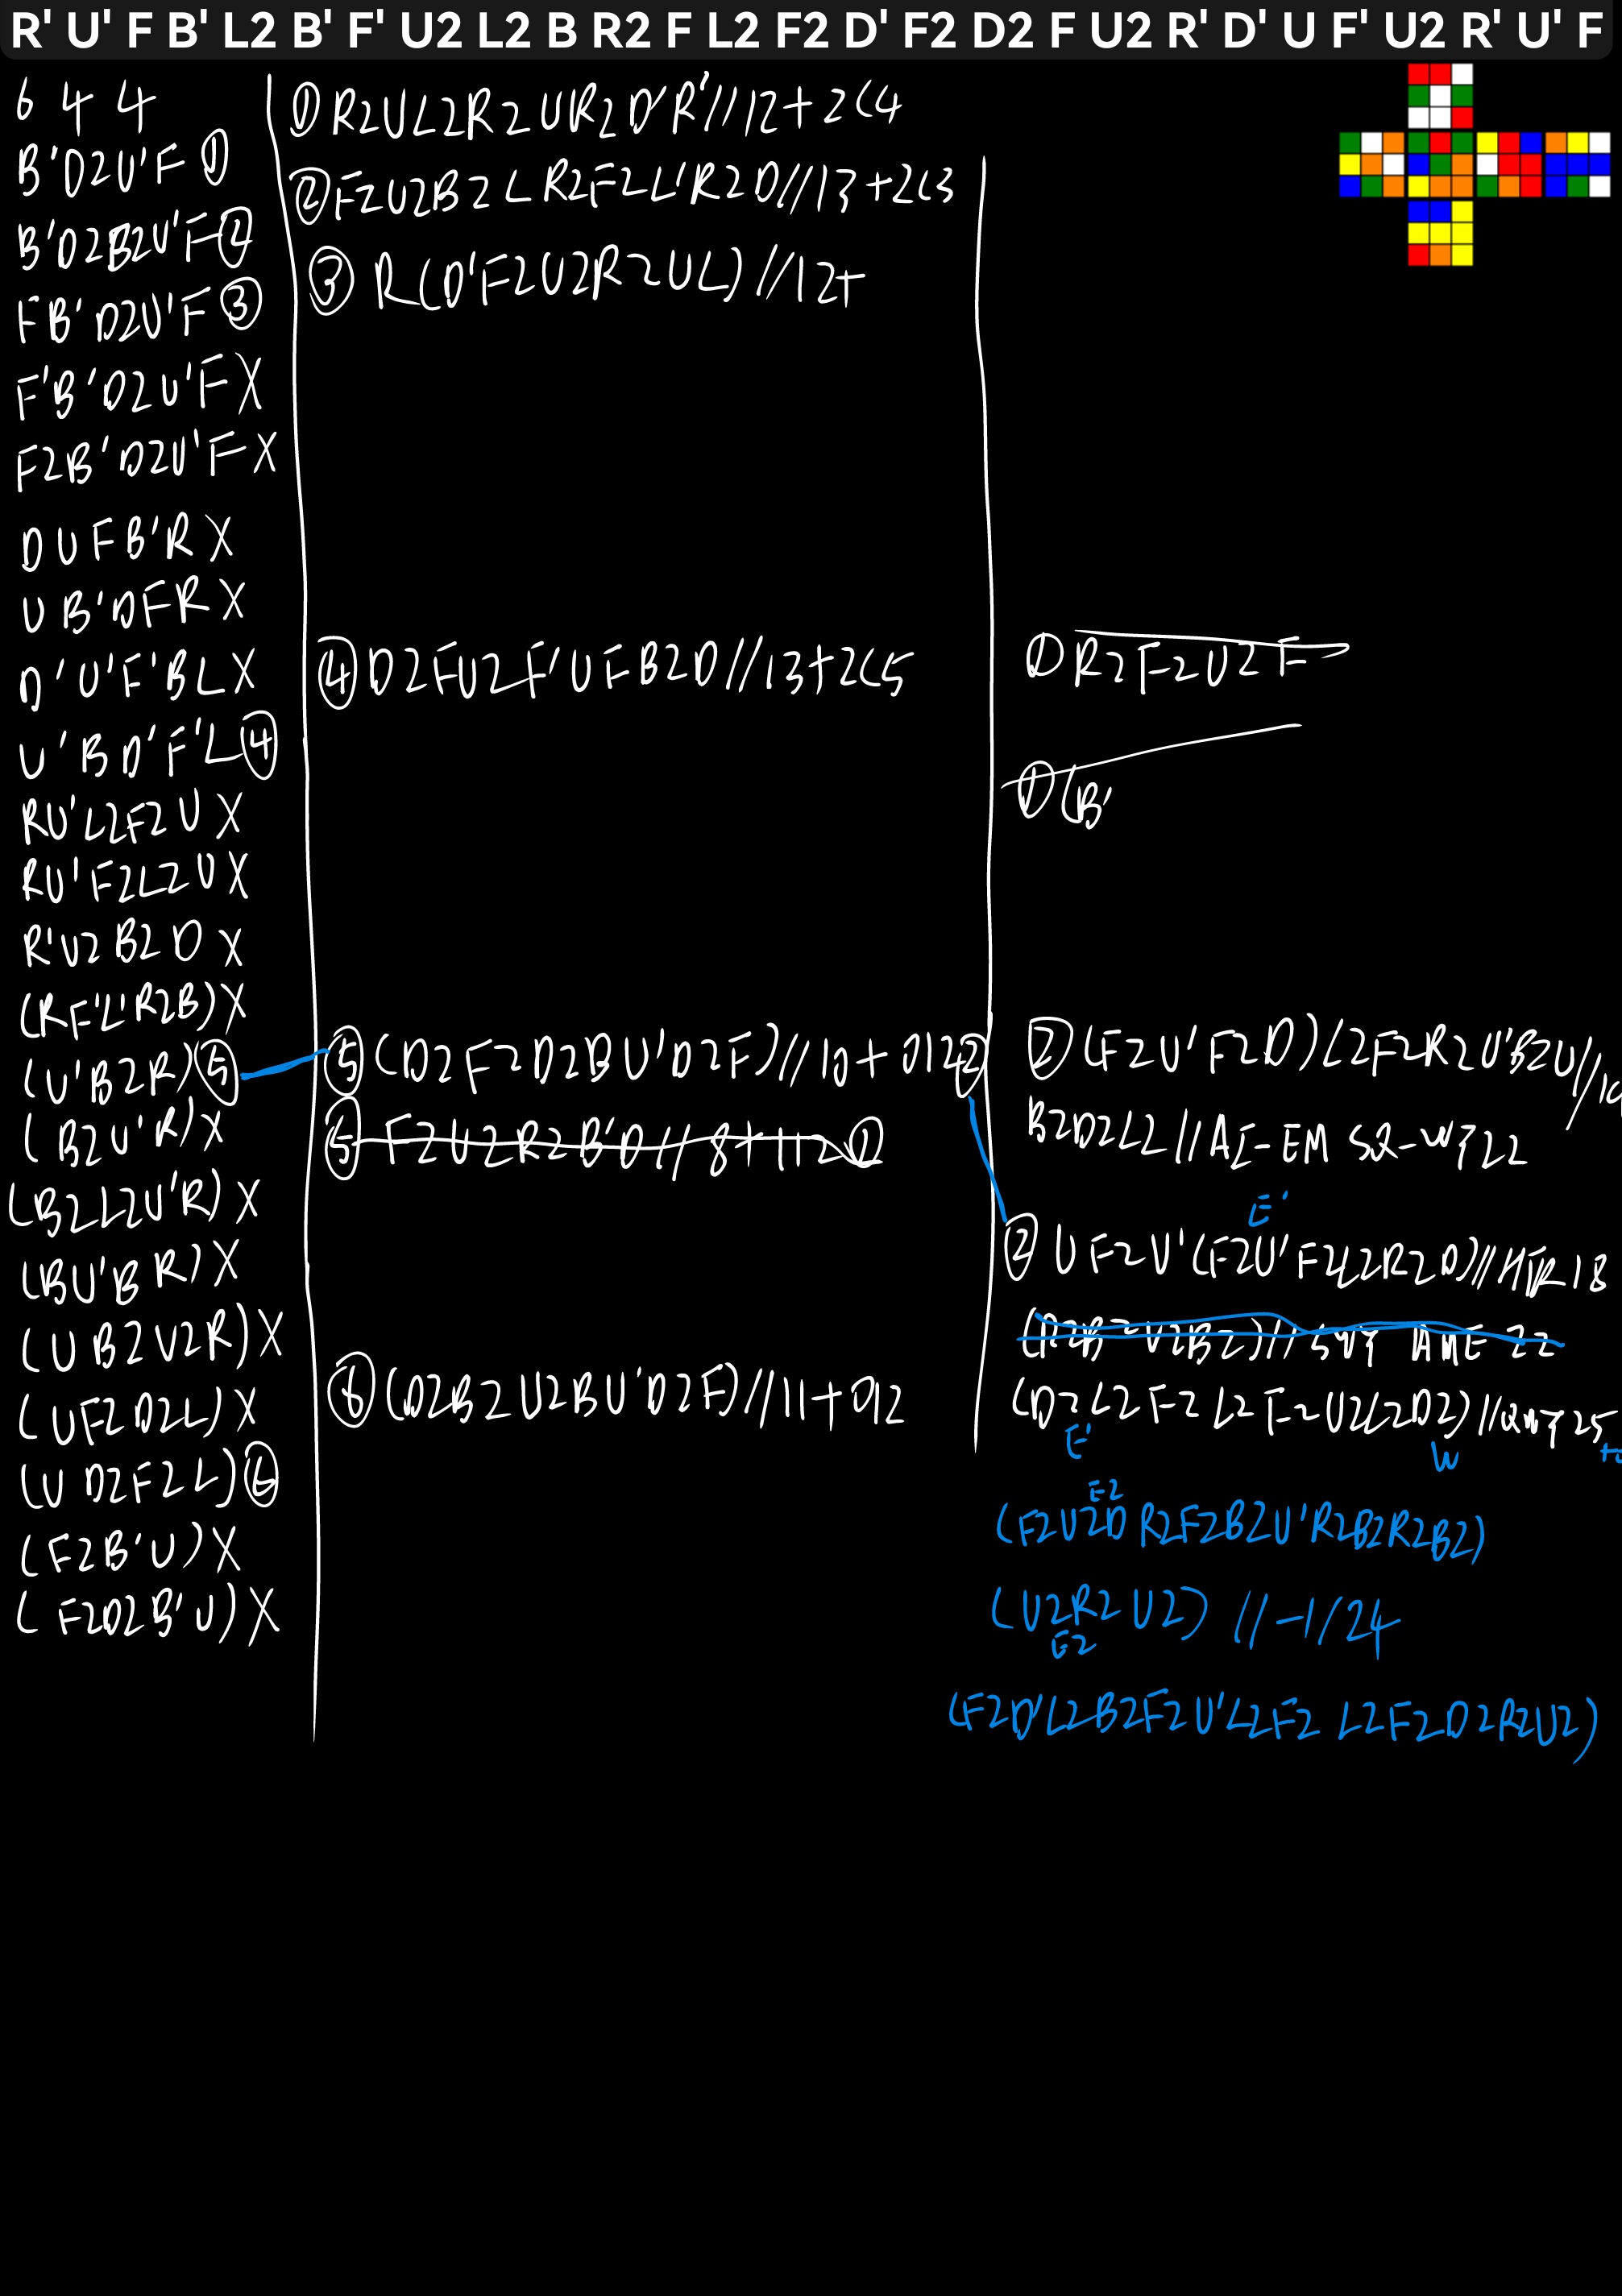 R' U' F B' L2 B' F' U2 L2 B R2 F L2 F2 D' F2 D2 F U2 R' D' U F' U2 R' U' F
6 4 4
B'D2U'F ①
B'D2B2U'F ②
FB'D2U'F ③
F'B'D2U'F X
F2B'D2U'F X
DUFB'R X
UB'DFR X
D'U'F'BL X
U'BD'F'L ④
RU'L2F2U X
RU'F2L2U X
R'U2B2D X
(RF'L'R2B) X
(U'B2R) ⑤
(B2U'R) X
(B2L2U'R) X
(BU'BR) X
(UB2U2R) X
(UF2D2L) X
(UD2F2L) ⑥
(F2B'U) X
(F2D2B'U) X
① R2UL2R2UR2D'R' // 12+2C4
② F2U2B2LR2F2L'R2D // 13+2C3
③ R(D'F2U2R2UL) // 12+
④ D2FU2F'UFB2D // 13+2C5
⑤ (D2F2D2BU'D2F) // 10+012 ②
⑤ F2U2R2B'D // 8+112 ①
⑥ (D2B2U2BU'D2F) // 11+012
① R2F2U2F
① (B'
② (F2U'F2D)L2F2R2U'B2U //
B2D2L2 //
E'
② UF2U'(F2U'F2L2R2D) // HTR 18
(D2L2F2L2F2U2L2D2) // 25
E'
W
E2
(F2U2D R2F2B2U'R2B2R2B2)
(U2R2U2) // -1/24
E2
(F2D'L2B2F2U'L2F2 L2F2D2R2U2)